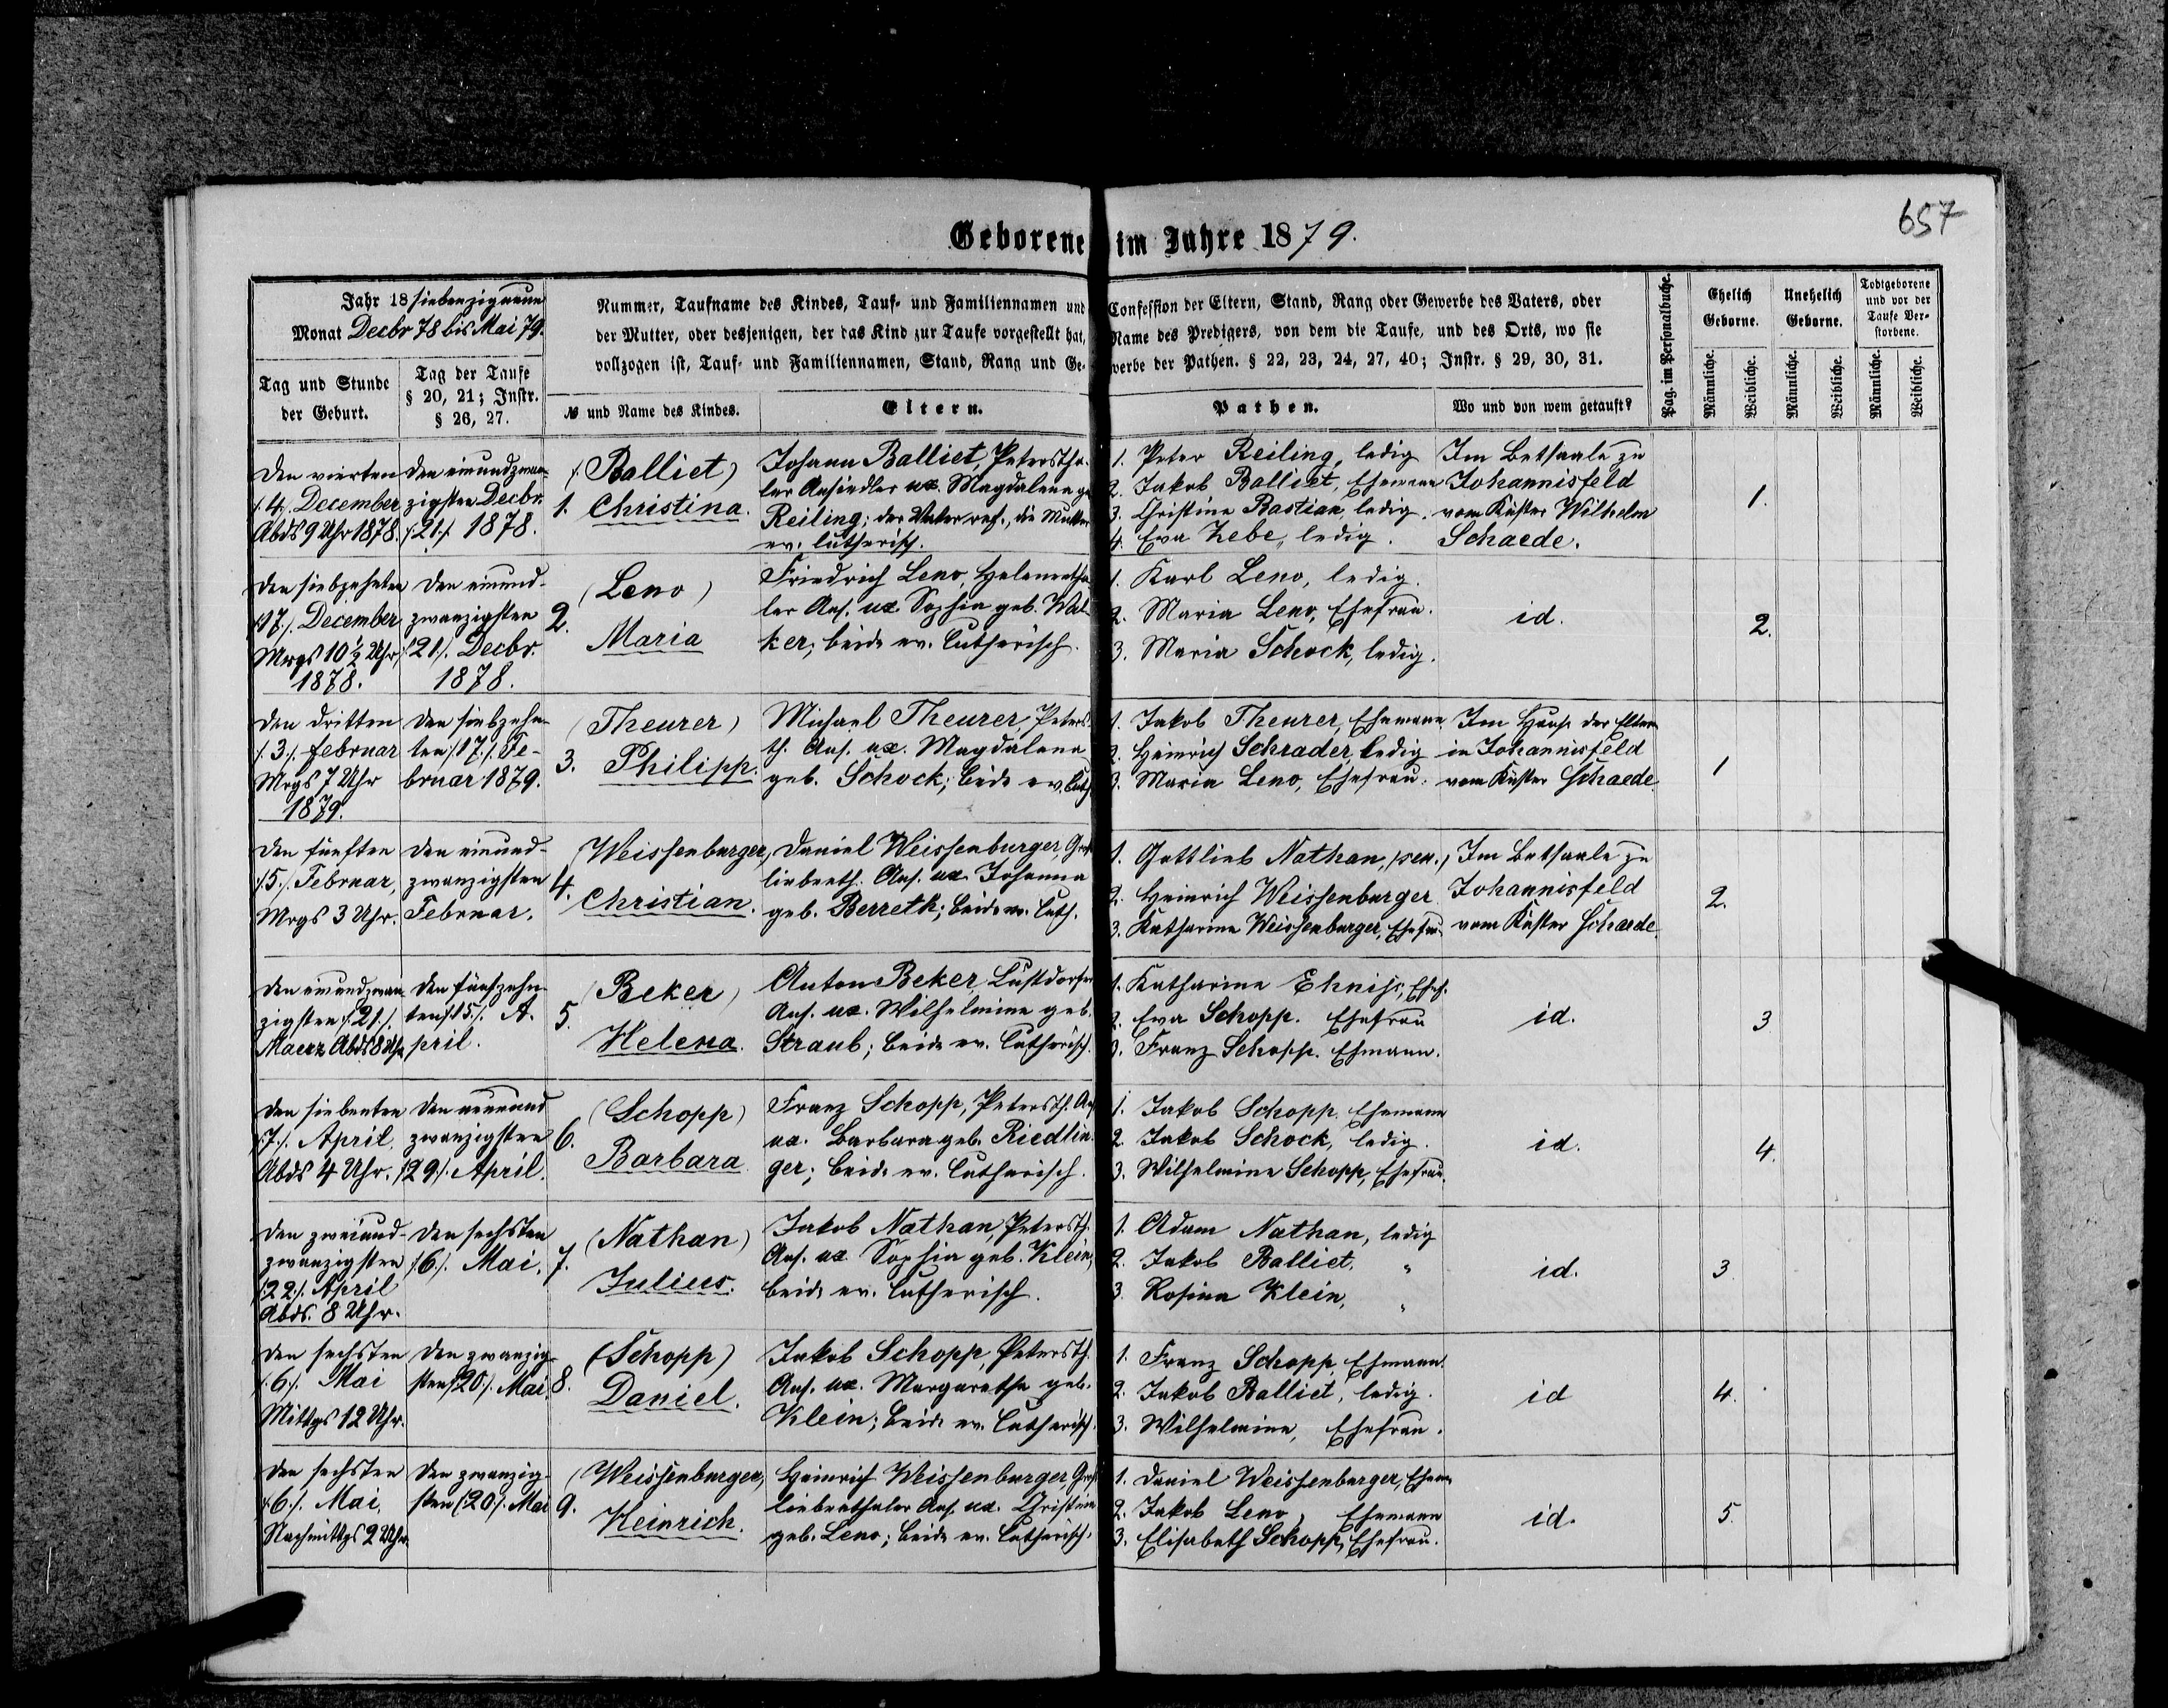 657
Geborene im Jahre 1879.
Jahr 18 siebenzigneun
Monat Decbr 78 bis Mai 79.
Tag und Stunde
der Geburt.
Tag der Taufe
§ 20, 21; Instr.
§ 26, 27.
Nummer, Taufname des Kindes, Tauf- und Familiennamen und
der Mutter, oder desjenigen, der das Kind zur Taufe vorgestellt hat,
vollzogen ist, Tauf- und Familiennamen, Stand, Rang und Ge-
№ und Name des Kindes.
Eltern.
Confession der Eltern, Stand, Rang oder Gewerbe des Vaters, oder
Name des Predigers, von dem die Taufe, und des Orts, wo sie
werbe der Pathen. § 22, 23, 24, 27, 40; Instr. § 29, 30, 31.
Pathen.
Wo und von wem getauft?
Pag. im Personalbuche.
Ehelich
Geborne.
Unehelich
Geborne.
Todtgeborene
und vor der
Taufe Ver-
storbene.
Männliche.
Weibliche.
Männliche.
Weibliche.
Männliche.
Weibliche.
Den vierten
/4/. December
Abds 9 Uhr 1878.
Den einundzwan-
zigsten Decbr.
/21/. 1878.
(Balliet)
1. Christina.
Johann Balliet, Petersth-
ler Ansiedler ux. Magdalena ge
Reiling; der Vater ref., die Mutter
ev. lutherisch.
1. Peter Reiling, ledig
2. Jakob Balliet, Ehemann
3. Christine Bastian, ledig.
4. Eva Zebe, ledig.
Im Betsaale zu
Johannisfeld
vom Küster Wilhelm
Schaede.
1.
Den siebzehnten
/17/. December
Mrgs 10½ Uhr
1878.
Den einund-
zwanzigsten
/21/. Decbr.
1878.
(Leno)
2.
Maria
Friedrich Leno, Helenentha
ler Ans. ux. Sophia geb. Wal-
ker; beide ev. lutherisch.
1. Karl Leno, ledig.
2. Maria Leno, Ehefrau.
3. Maria Schock, ledig.
id.
2.
Den dritten
/3/. Februar
Mrgs 7 Uhr
1879.
Den siebzehn-
ten /17/. Fe-
bruar 1879.
(Theurer)
3. Philipp.
Michael Theurer, Peters-
th. Ans. ux. Magdalena
geb. Schock; beide ev. luth
1. Jakob Theurer, Ehemann
2. Heinrich Schrader, ledig
3. Maria Leno, Ehefrau.
Im Hause der Eltern
in Johannisfeld
vom Küster Schaede.
1
Den fünften
/5/. Februar,
Mrgs 3 Uhr.
Den einund-
zwanzigsten
Februar.
(Weissenburger)
4.
Christian.
Daniel Weissenburger, Groß
liebenth. Ans. ux. Johanna
geb. Berreth; beide ev. luth.
1. Gottlieb Nathan, /sen./
2. Heinrich Weissenburger
3. Katharina Weissenburger, Ehefrau
Im Betsaale zu
Johannisfeld
vom Küster Schaede.
2.
Den einundzwan-
zigsten /21/.
Maerz Abds 8 Uhr
Den fünfzehn-
ten /15/. A-
pril.
(Beker)
5.
Helena.
Anton Beker, Lustdorfer
Ans. ux. Wilhelmine geb.
Straub; beide ev. lutherisch.
1. Katharina Ehniss, Ehef.
2. Eva Schopp. Ehefrau
3. Franz Schopp. Ehmann.
id.
3
Den siebenten
/7/. April,
Abds 4 Uhr.
Den neunund
zwanzigsten
/29/. April.
(Schopp)
6.
Barbara
Franz Schopp, Petersth. Ans
ux. Barbara geb. Riedlin-
ger; beide ev. lutherisch.
1. Jakob Schopp, Ehemann
2. Jakob Schock, ledig.
3. Wilhelmine Schopp, Ehefrau.
id.
4.
Den zweiund-
zwanzigsten
/22/. April
Abds. 8 Uhr.
Den sechsten
/6/. Mai.
(Nathan)
7.
Julius.
Jakob Nathan, Petersth.
Ans. ux. Sophia geb. Klein,
beide ev. lutherisch.
1. Adam Nathan, ledig
2. Jakob Balliet, "
3. Rosina Klein, "
id.
3
Den sechsten
/6/. Mai
Mittgs 12 Uhr.
Den zwanzig-
sten /20/. Mai
(Schopp)
8.
Daniel.
Jakob Schopp, Petersth.
Ans. ux. Margaretha geb.
Klein; beide ev. lutherisch.
1. Franz Schopp, Ehmann.
2. Jakob Balliet, ledig.
3. Wilhelmine, Ehefrau.
id
4.
Den sechsten
/6/. Mai,
Nachmittgs 2 Uhr.
Den zwanzig-
sten /20/. Mai
(Weissenburger)
9.
Heinrich.
Heinrich Weissenburger, Groß
liebenthaler Ans. ux. Christina
geb. Leno; beide ev. lutherisch.
1. Daniel Weissenburger, Ehem
2. Jakob Leno, Ehemann
3. Elisabeth Schopp, Ehefrau.
id.
5.